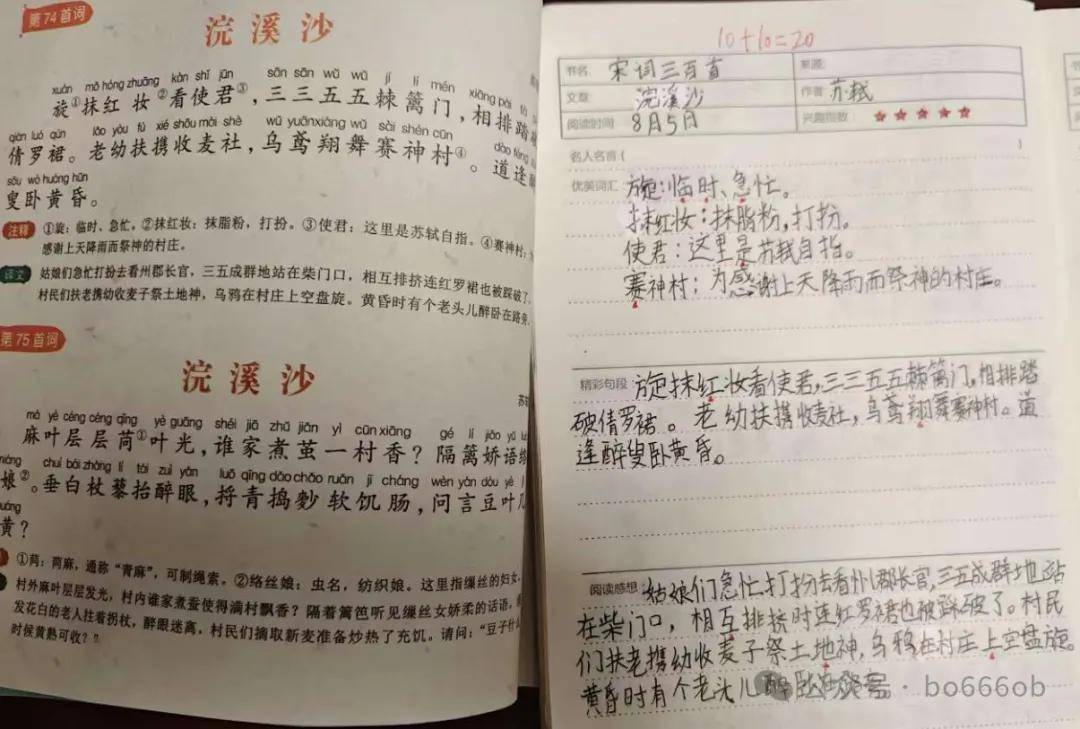 第74首词
浣溪沙
xuán mǒ hóng zhuāng kàn shǐ jūn sān sān wǔ wǔ jí lí mén xiāng pái
旋①抹红妆②看使君③，三三五五棘篱门，相排踏
qiàn luó qún lǎo yòu fú xié shōu mài shè wū yuān xiáng wǔ sài shén cūn dào féng
倩罗裙。老幼扶携收麦社，乌鸢翔舞赛神村④。道逢
sǒu wò huáng hūn
叟卧黄昏。
注释 ①旋：临时、急忙。②抹红妆：抹脂粉，打扮。③使君：这里是苏轼自指。④赛神村：
感谢上天降雨而祭神的村庄。
译文 姑娘们急忙打扮去看州郡长官，三五成群地站在柴门口，相互排挤连红罗裙也被踩破了
村民们扶老携幼收麦子祭土地神，乌鸦在村庄上空盘旋。黄昏时有个老头儿醉卧在路旁
第75首词
浣溪沙
má yè céng céng qǐng yè guāng shéi jiā zhǔ jiǎn yì cūn xiāng gé lí jiāo yǔ
麻叶层层苘①叶光，谁家煮茧一村香？隔篱娇语络
niáng chuí bái zhàng lí tái zuì yǎn luō qīng dǎo chǎo ruǎn jī cháng wèn yán dòu yè
娘②。垂白杖藜抬醉眼，捋青捣麨软饥肠，问言豆叶几
huáng
黄？
①苘：苘麻，通称“青麻”，可制绳索。②络丝娘：虫名，纺织娘。这里指缫丝的妇女
村外麻叶层层发光，村内谁家煮蚕使得满村飘香？隔着篱笆听见缫丝女娇柔的话语，
发花白的老人拄着拐杖，醉眼迷离，村民们摘取新麦准备炒熟了充饥。请问：“豆子什
时候黄熟可收？”
10+10=20
书名 宋词三百首 来源
文章 浣溪沙 作者 苏轼
阅读时间 8月5日 兴趣指数 ★★★★★
名人名言（ ）
优美词汇 旋：临时、急忙。
抹红妆：抹脂粉，打扮。
使君：这里是苏轼自指。
赛神村：为感谢上天降雨而祭神的村庄。
精彩句段 旋抹红妆看使君，三三五五棘篱门，相排踏
破倩罗裙。老幼扶携收麦社，乌鸢翔舞赛神村。道
逢醉叟卧黄昏。
阅读感想 姑娘们急忙打扮去看州郡长官，三五成群地站
在柴门口，相互排挤时连红罗裙也被踩破了。村民
们扶老携幼收麦子祭土地神，乌鸦在村庄上空盘旋。
黄昏时有个老头儿醉卧 · bo666ob